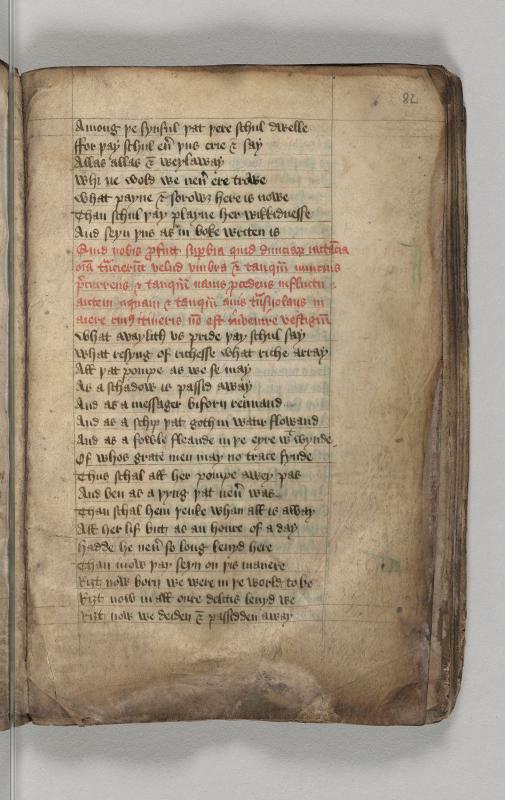 82
Among þe synful þat þere schul dwelle
ffor þay schul eu̅ þus crie ⁊ say
Allas allas ⁊ weylaway
Whi ne wold we neu̅ ere trowe
What payne ⁊ sorowȝ here is nowe
Than schul þay playne her wikkidnesse
And seyn þus as in boke writen is
Quid nobis ꝓfuit suꝑbia quid diuiciaꝝ iactācia
oīa tͣnsierūt velud vmbra ⁊ tanqͣm nuncius
ꝑcurrens ⁊ tanqͣm nauis ꝓcedens in fluctu
autem aquam ⁊ tanqͣm auis tͣnsuolans in
aiere cuiꝰ itineris nō est inuenire vestigiū
What awaylith vs pride þay schul say
What resyng of richesse what riche array
All þat pompe as we se may
As a schadow is passid away
And as a messager biforn rennand
And as a schip þat goth in watir flowand
And as a fowle fleande in þe eyre wᵗ wynde
Of whos grate men may no trace fynde
Thus schal all her pompe awey pas
And ben as a þyng þat neu̅ was
Than schal hem þenke whan all is away
All her lif but as an houre of a day
Hadde he neu̅ so long leuyd here
Than mow þay seyn on þis manere
Riȝt now born we were in þe world to be
Riȝt now in all oure delitis leuyd we
Riȝt now we deiden ⁊ passidden away